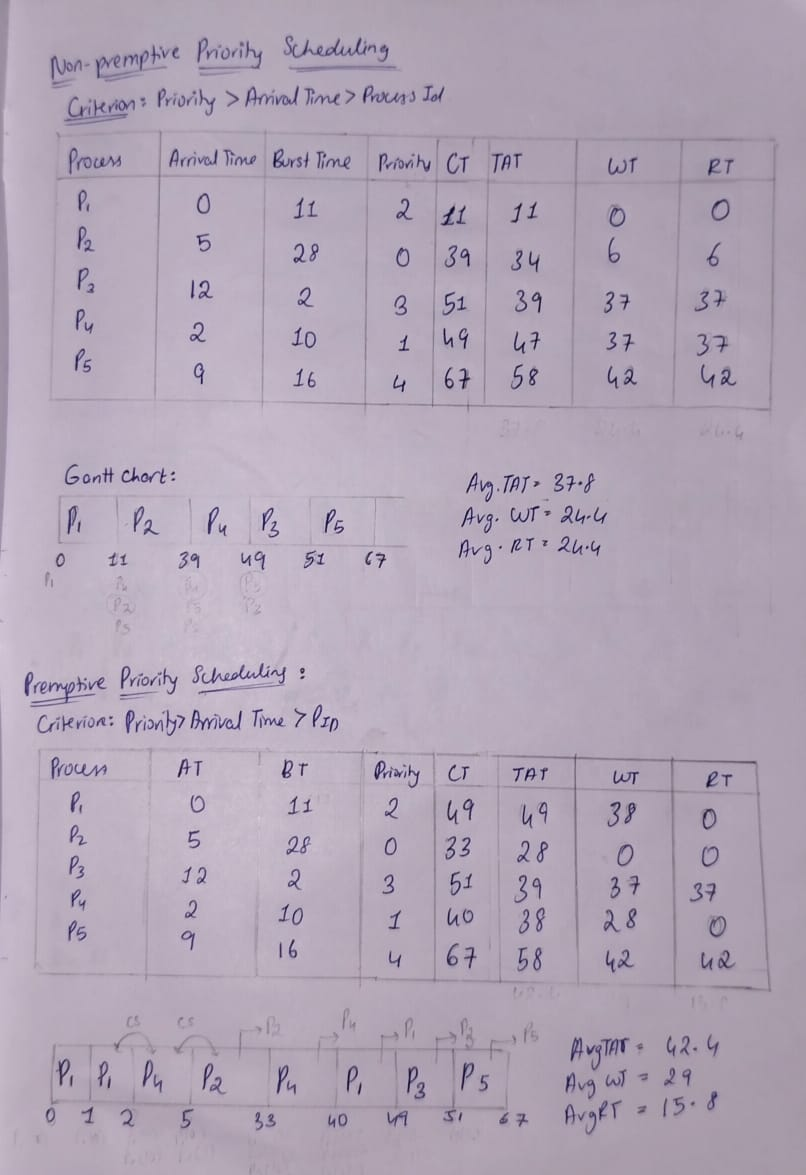 Non-premptive Priority Scheduling
Criterion: Priority > Arrival Time > Process Id
Process Arrival Time Burst Time Priority CT TAT WT RT
P1 0 11 2 11 11 0 0
P2 5 28 0 39 34 6 6
P3 12 2 3 51 39 37 37
P4 2 10 1 49 47 37 37
P5 9 16 4 67 58 42 42
Gantt Chart:
Avg. TAT = 37.8
Avg. WT = 24.4
Avg. RT = 24.4
P1 P2 P4 P3 P5
0 11 39 49 51 67
P1 P4 P4 P3
P2 P5
P5
Premptive Priority Scheduling:
Criterion: Priority > Arrival Time > PID
Process AT BT Priority CT TAT WT RT
P1 0 11 2 49 49 38 0
P2 5 28 0 33 28 0 0
P3 12 2 3 51 39 37 37
P4 2 10 1 40 38 28 0
P5 9 16 4 67 58 42 42
CS CS P2 P4 P1 P3 P5
P1 P1 P4 P2 P4 P1 P3 P5
0 1 2 5 33 40 49 51 67
Avg TAT = 42.4
Avg WT = 29
Avg RT = 15.8